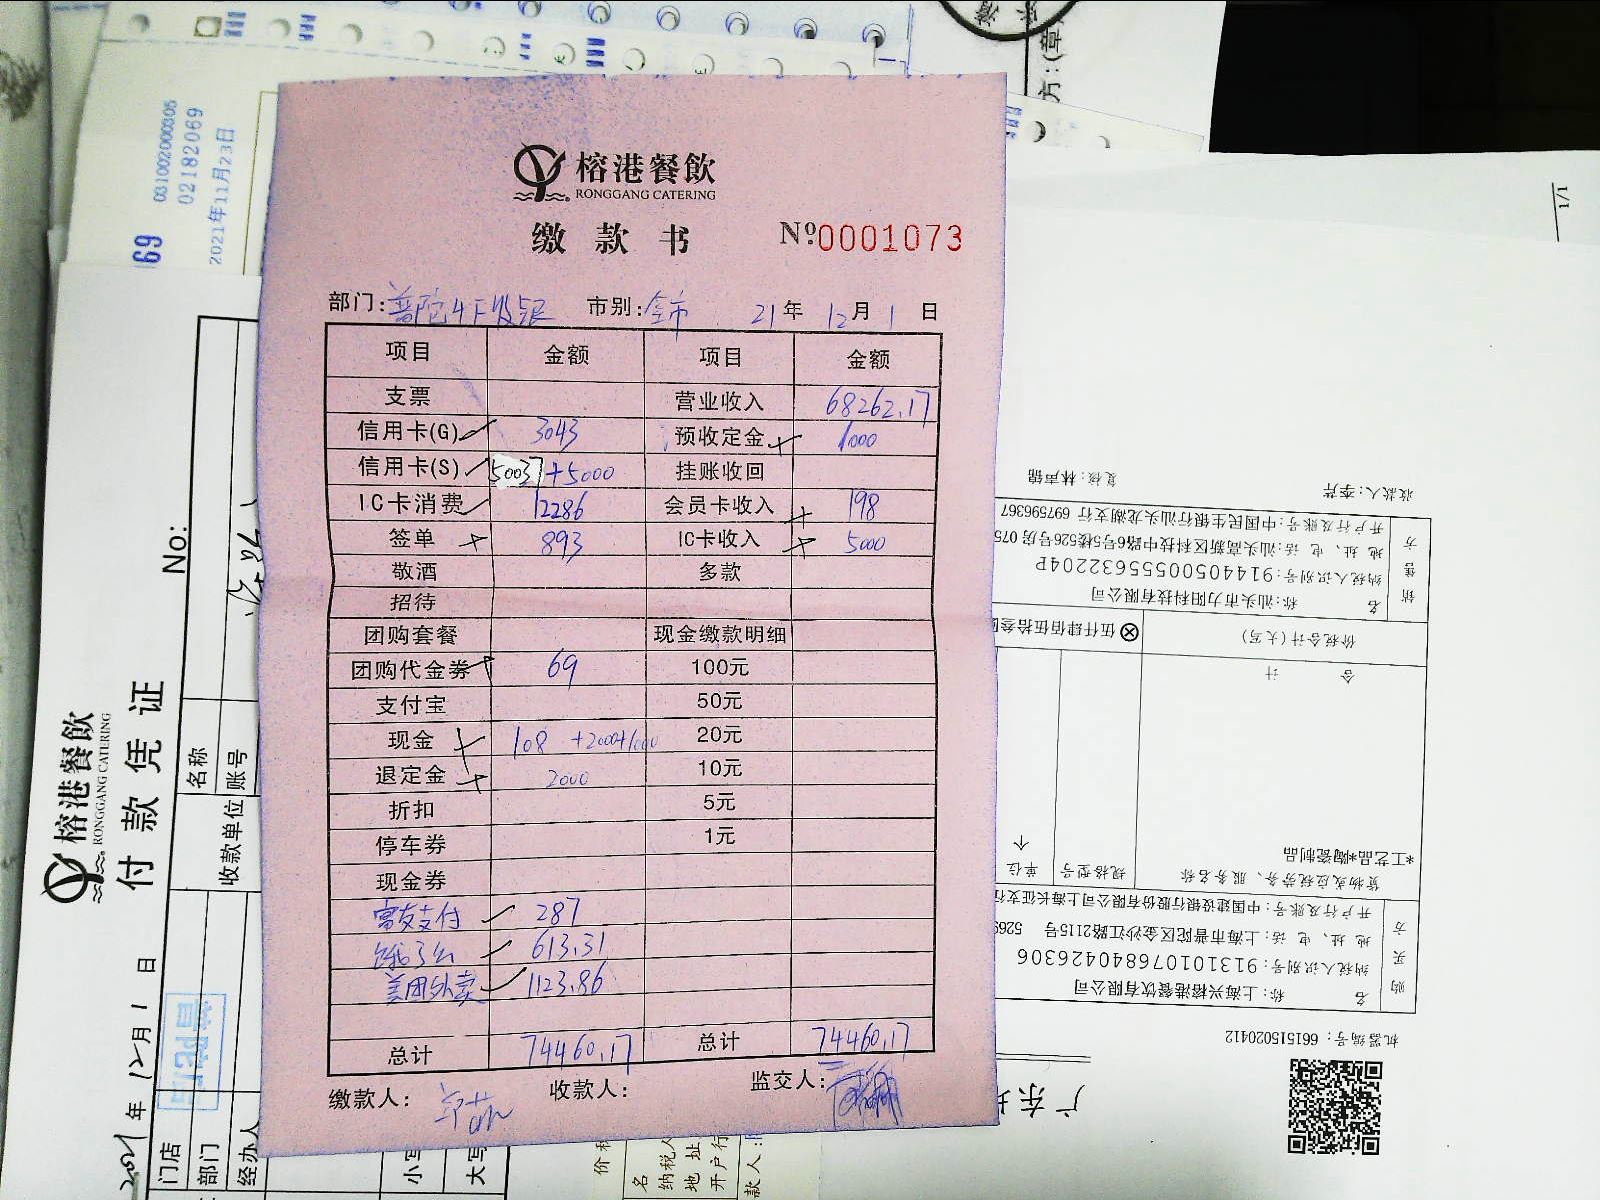 榕港餐飲
RONGGANG CATERING
缴款书 №0001073
部门:普陀4F收银 市别:全市 21年 12月 1日
项目 金额 项目 金额
支票 营业收入 68262.17
信用卡(G) 3043 预收定金 1000
信用卡(S) 50037+5000 挂账收回
IC卡消费 12286 会员卡收入 198
签单 893 IC卡收入 5000
敬酒 多款
招待
团购套餐 现金缴款明细
团购代金券 69 100元
支付宝 50元
现金 108 +2000+1000 20元
退定金 2000 10元
折扣 5元
停车券 1元
现金券
富友支付 287
饿了么 613.31
美团外卖 1123.86
总计 74460.17 总计 74460.17
缴款人: 收款人: 监交人:
031002000305
02182069
2021年11月23日
69
榕港餐飲
RONGGANG CATERING
付款凭证
No:
2021年12月1日
普陀店
门店
部门
经办人
收款单位
名称
账号
小写
大写
方:(章
1/1
机器编号: 661515020412
购买方
名 称: 上海兴榕港餐饮有限公司
纳税人识别号: 913101076840426306
地 址、电 话: 上海市普陀区金沙江路2115号 5269
开户行及账号: 中国建设银行股份有限公司上海长征支行
货物或应税劳务、服务名称 规格型号 单位
*工艺品*陶瓷制品 个
合 计
价税合计(大写) ⊗伍仟肆佰伍拾叁
销售方
名 称: 汕头市力阳科技有限公司
纳税人识别号: 91440500555632204P
地 址、电 话: 汕头高新区科技中路6号5楼526号房 075
开户行及账号: 中国民生银行汕头龙湖支行 697596367
收款人: 李芹 复核: 林声锦
广东
价税
名
纳税人
地 址
开户行
款人: